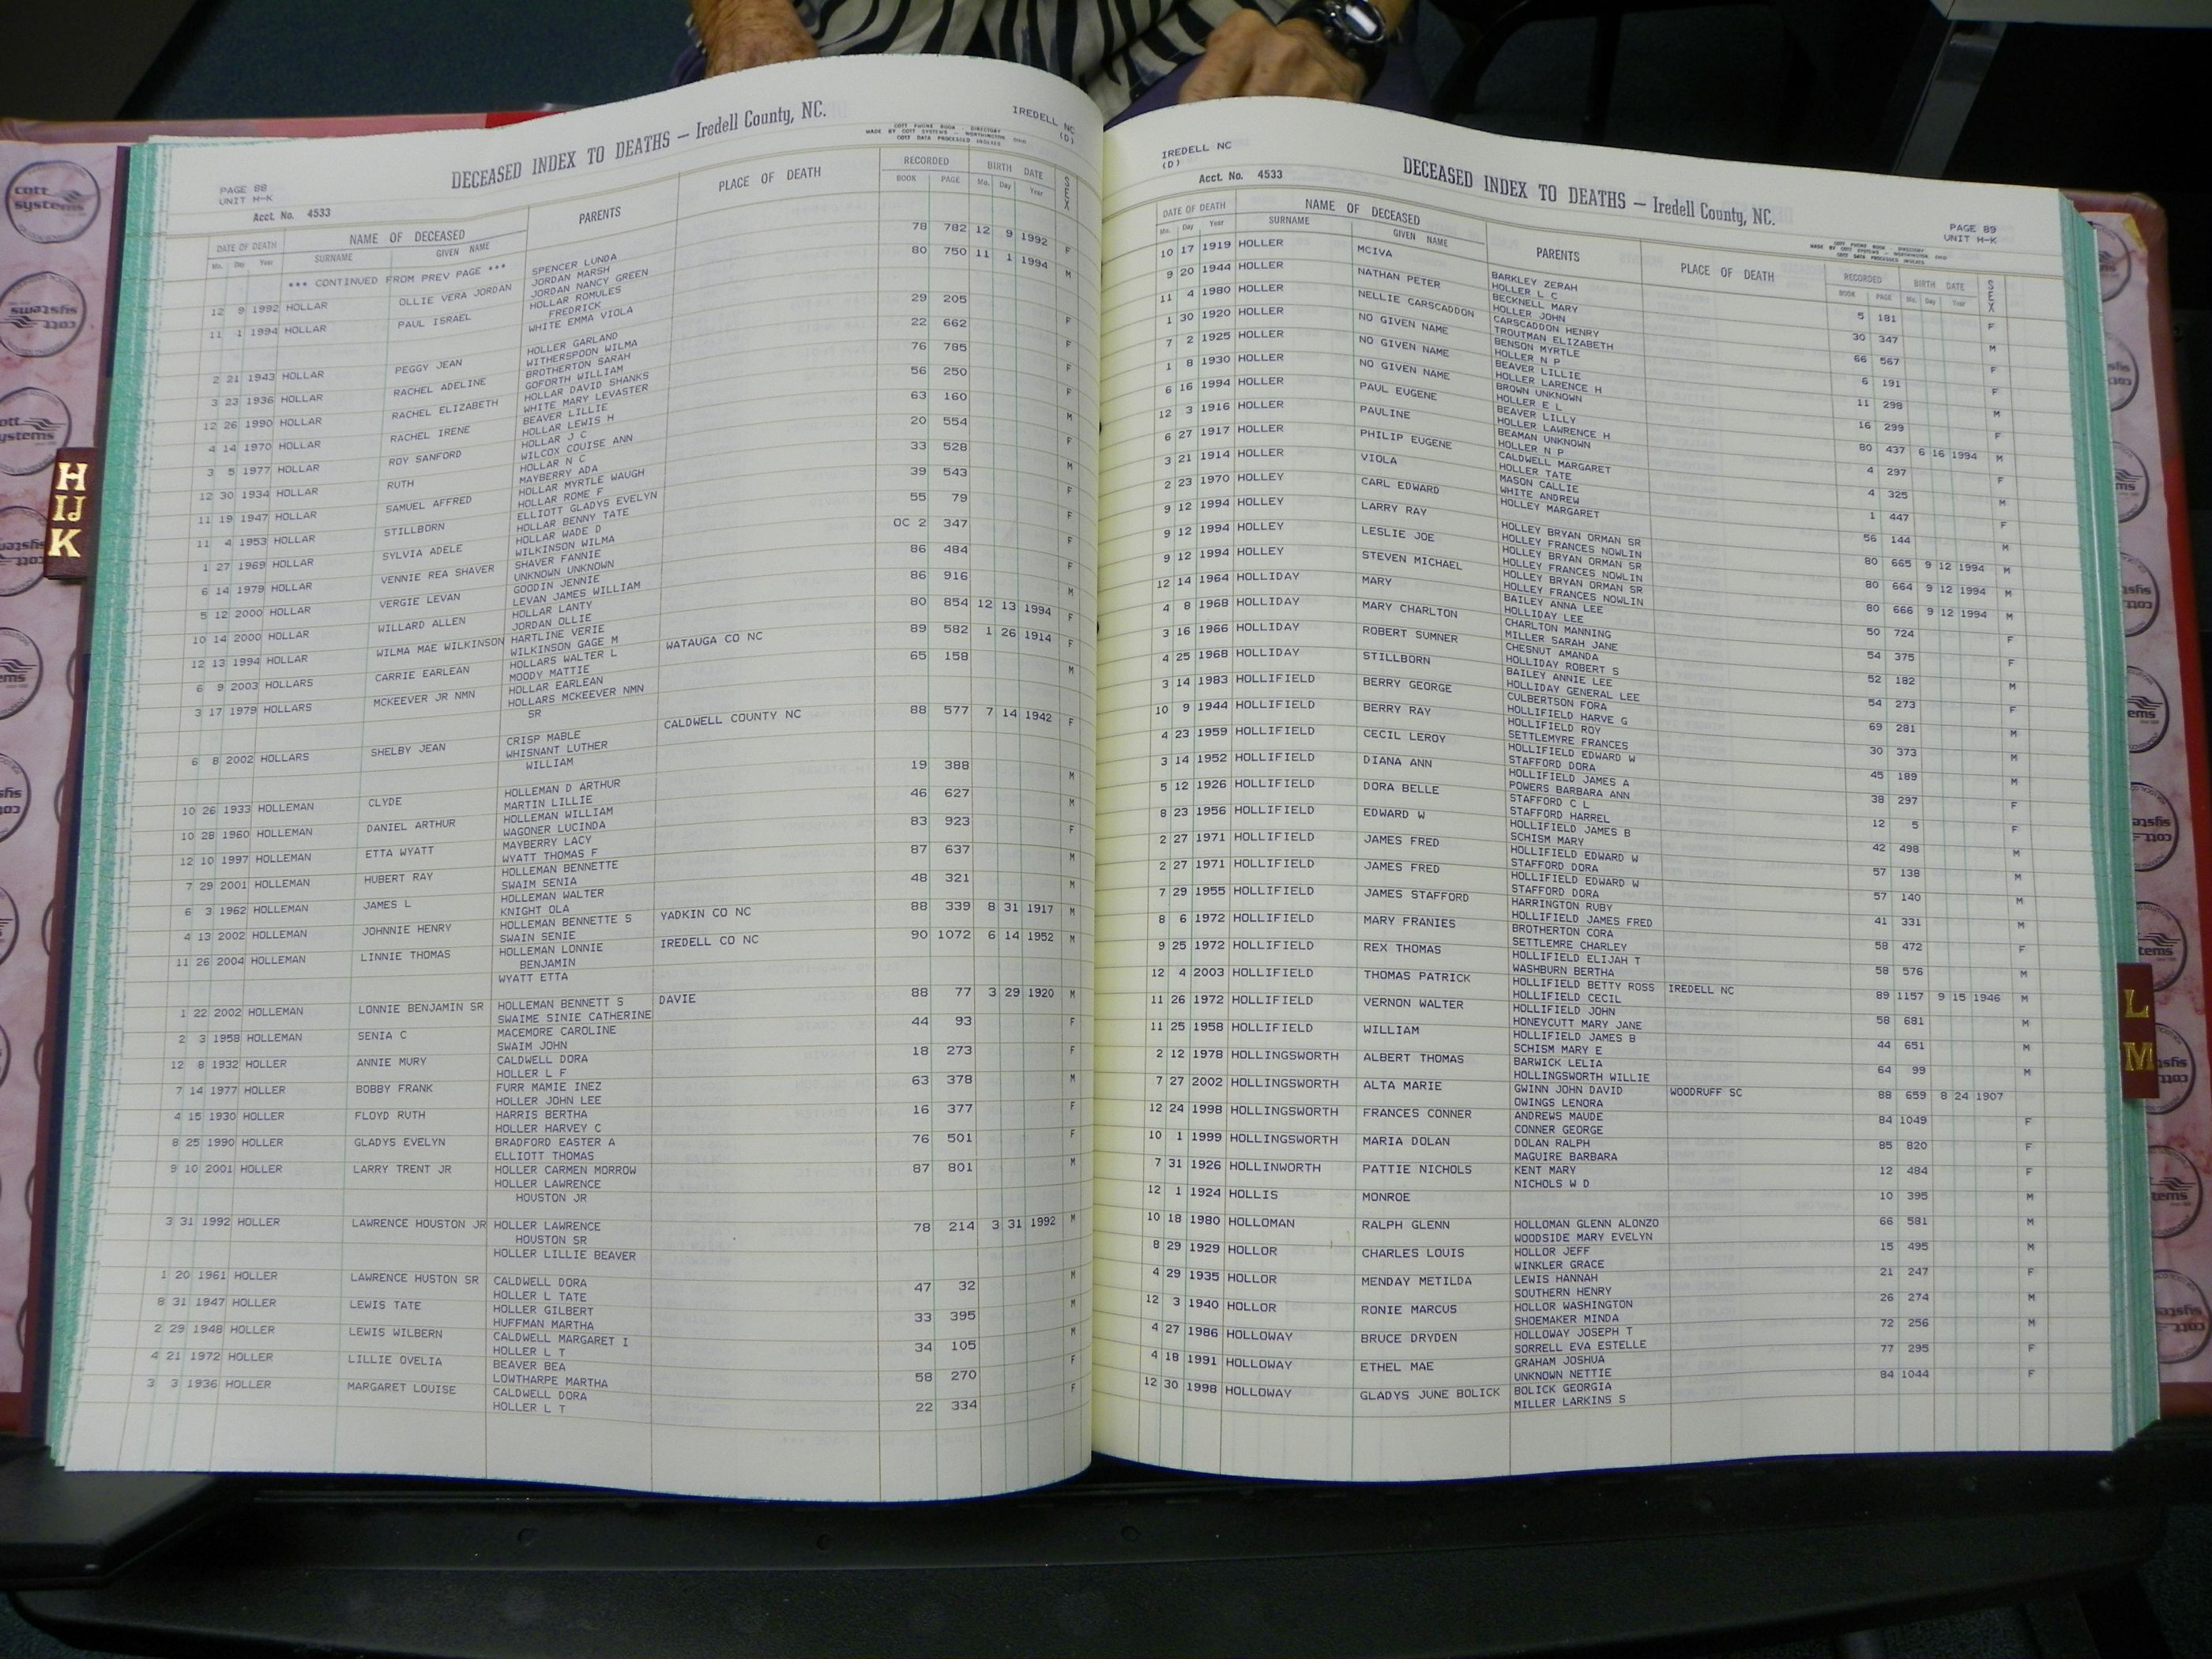 DECEASED INDEX TO DEATHS — Iredell County, NC.
IREDELL NC
(D)
COTT PHONE BOOK - DIRECTORY
MADE BY COTT SYSTEMS -- WORTHINGTON OHIO
COTT DATA PROCESSED INDEXES
PAGE 88
UNIT H-K
Acct. No. 4533
DATE OF DEATH NAME OF DECEASED PARENTS PLACE OF DEATH RECORDED BIRTH DATE SEX
Mo. Day Year SURNAME GIVEN NAME BOOK PAGE Mo. Day Year
*** CONTINUED FROM PREV PAGE ***
12 9 1992 HOLLAR OLLIE VERA JORDAN SPENCER LUNDA 78 782 12 9 1992 F
JORDAN MARSH
11 1 1994 HOLLAR PAUL ISRAEL JORDAN NANCY GREEN 80 750 11 1 1994 M
HOLLAR ROMULES
FREDRICK
WHITE EMMA VIOLA
2 21 1943 HOLLAR PEGGY JEAN HOLLER GARLAND 29 205 F
WITHERSPOON WILMA
3 23 1936 HOLLAR RACHEL ADELINE BROTHERTON SARAH 22 662 F
GOFORTH WILLIAM
12 26 1990 HOLLAR RACHEL ELIZABETH HOLLAR DAVID SHANKS 76 785 F
WHITE MARY LEVASTER
4 14 1970 HOLLAR RACHEL IRENE BEAVER LILLIE 56 250 F
HOLLAR LEWIS H
3 5 1977 HOLLAR ROY SANFORD HOLLAR J C 63 160 M
WILCOX COUISE ANN
12 30 1934 HOLLAR RUTH HOLLAR N C 20 554 F
MAYBERRY ADA
11 19 1947 HOLLAR SAMUEL AFFRED HOLLAR MYRTLE WAUGH 33 528 M
HOLLAR ROME F
11 4 1953 HOLLAR STILLBORN ELLIOTT GLADYS EVELYN 39 543 F
HOLLAR BENNY TATE
1 27 1969 HOLLAR SYLVIA ADELE HOLLAR WADE D 55 79 F
WILKINSON WILMA
6 14 1979 HOLLAR VENNIE REA SHAVER SHAVER FANNIE OC 2 347 F
UNKNOWN UNKNOWN
5 12 2000 HOLLAR VERGIE LEVAN GOODIN JENNIE 86 484 F
LEVAN JAMES WILLIAM
10 14 2000 HOLLAR WILLARD ALLEN HOLLAR LANTY 86 916 M
JORDAN OLLIE
12 13 1994 HOLLAR WILMA MAE WILKINSON HARTLINE VERIE 80 854 12 13 1994 F
WILKINSON GAGE M
6 9 2003 HOLLARS CARRIE EARLEAN HOLLARS WALTER L WATAUGA CO NC 89 582 1 26 1914 F
MOODY MATTIE
3 17 1979 HOLLARS MCKEEVER JR NMN HOLLAR EARLEAN 65 158 M
HOLLARS MCKEEVER NMN
SR
6 8 2002 HOLLARS SHELBY JEAN CRISP MABLE CALDWELL COUNTY NC 88 577 7 14 1942 F
WHISNANT LUTHER
WILLIAM
10 26 1933 HOLLEMAN CLYDE HOLLEMAN D ARTHUR 19 388 M
MARTIN LILLIE
10 28 1960 HOLLEMAN DANIEL ARTHUR HOLLEMAN WILLIAM 46 627 M
WAGONER LUCINDA
12 10 1997 HOLLEMAN ETTA WYATT MAYBERRY LACY 83 923 F
WYATT THOMAS F
7 29 2001 HOLLEMAN HUBERT RAY HOLLEMAN BENNETTE 87 637 M
SWAIM SENIA
6 3 1962 HOLLEMAN JAMES L HOLLEMAN WALTER 48 321 M
KNIGHT OLA
4 13 2002 HOLLEMAN JOHNNIE HENRY HOLLEMAN BENNETTE S YADKIN CO NC 88 339 8 31 1917 M
SWAIN SENIE
11 26 2004 HOLLEMAN LINNIE THOMAS HOLLEMAN LONNIE IREDELL CO NC 90 1072 6 14 1952 M
BENJAMIN
WYATT ETTA
1 22 2002 HOLLEMAN LONNIE BENJAMIN SR HOLLEMAN BENNETT S DAVIE 88 77 3 29 1920 M
SWAIME SINIE CATHERINE
2 3 1958 HOLLEMAN SENIA C MACEMORE CAROLINE 44 93 F
SWAIM JOHN
12 8 1932 HOLLER ANNIE MURY CALDWELL DORA 18 273 F
HOLLER L F
7 14 1977 HOLLER BOBBY FRANK FURR MAMIE INEZ 63 378 M
HOLLER JOHN LEE
4 15 1930 HOLLER FLOYD RUTH HARRIS BERTHA 16 377 F
HOLLER HARVEY C
8 25 1990 HOLLER GLADYS EVELYN BRADFORD EASTER A 76 501 F
ELLIOTT THOMAS
9 10 2001 HOLLER LARRY TRENT JR HOLLER CARMEN MORROW 87 801 M
HOLLER LAWRENCE
HOUSTON JR
3 31 1992 HOLLER LAWRENCE HOUSTON JR HOLLER LAWRENCE 78 214 3 31 1992 M
HOUSTON SR
HOLLER LILLIE BEAVER
1 20 1961 HOLLER LAWRENCE HUSTON SR CALDWELL DORA 47 32 M
HOLLER L TATE
8 31 1947 HOLLER LEWIS TATE HOLLER GILBERT 33 395 M
HUFFMAN MARTHA
2 29 1948 HOLLER LEWIS WILBERN CALDWELL MARGARET I 34 105 M
HOLLER L T
4 21 1972 HOLLER LILLIE OVELIA BEAVER BEA 58 270 F
LOWTHARPE MARTHA
3 3 1936 HOLLER MARGARET LOUISE CALDWELL DORA 22 334 F
HOLLER L T
IREDELL NC
(D)
Acct. No. 4533
DECEASED INDEX TO DEATHS — Iredell County, NC.
PAGE 89
UNIT H-K
COTT PHONE BOOK - DIRECTORY
MADE BY COTT SYSTEMS -- WORTHINGTON OHIO
COTT DATA PROCESSED INDEXES
DATE OF DEATH NAME OF DECEASED PARENTS PLACE OF DEATH RECORDED BIRTH DATE SEX
Mo. Day Year SURNAME GIVEN NAME BOOK PAGE Mo. Day Year
10 17 1919 HOLLER MCIVA BARKLEY ZERAH 5 181 F
HOLLER L C
9 20 1944 HOLLER NATHAN PETER BECKNELL MARY 30 347 M
HOLLER JOHN
11 4 1980 HOLLER NELLIE CARSCADDON CARSCADDON HENRY 66 567 F
TROUTMAN ELIZABETH
1 30 1920 HOLLER NO GIVEN NAME BENSON MYRTLE 6 191 F
HOLLER N P
7 2 1925 HOLLER NO GIVEN NAME BEAVER LILLIE 11 298 M
HOLLER LARENCE H
1 8 1930 HOLLER NO GIVEN NAME BROWN UNKNOWN 16 299 F
HOLLER E L
6 16 1994 HOLLER PAUL EUGENE BEAVER LILLY 80 437 6 16 1994 M
HOLLER LAWRENCE H
12 3 1916 HOLLER PAULINE BEAMAN UNKNOWN 4 297 F
HOLLER N P
6 27 1917 HOLLER PHILIP EUGENE CALDWELL MARGARET 4 325 M
HOLLER TATE
3 21 1914 HOLLER VIOLA MASON CALLIE 1 447 F
WHITE ANDREW
2 23 1970 HOLLEY CARL EDWARD HOLLEY MARGARET 56 144 M
9 12 1994 HOLLEY LARRY RAY HOLLEY BRYAN ORMAN SR 80 665 9 12 1994 M
HOLLEY FRANCES NOWLIN
9 12 1994 HOLLEY LESLIE JOE HOLLEY BRYAN ORMAN SR 80 664 9 12 1994 M
HOLLEY FRANCES NOWLIN
9 12 1994 HOLLEY STEVEN MICHAEL HOLLEY BRYAN ORMAN SR 80 666 9 12 1994 M
HOLLEY FRANCES NOWLIN
12 14 1964 HOLLIDAY MARY BAILEY ANNA LEE 50 724 F
HOLLIDAY LEE
4 8 1968 HOLLIDAY MARY CHARLTON CHARLTON MANNING 54 375 F
MILLER SARAH JANE
3 16 1966 HOLLIDAY ROBERT SUMNER CHESNUT AMANDA 52 182 M
HOLLIDAY ROBERT S
4 25 1968 HOLLIDAY STILLBORN BAILEY ANNIE LEE 54 273 F
HOLLIDAY GENERAL LEE
3 14 1983 HOLLIFIELD BERRY GEORGE CULBERTSON FORA 69 281 M
HOLLIFIELD HARVE G
10 9 1944 HOLLIFIELD BERRY RAY HOLLIFIELD ROY 30 373 M
SETTLEMYRE FRANCES
4 23 1959 HOLLIFIELD CECIL LEROY HOLLIFIELD EDWARD W 45 189 M
STAFFORD DORA
3 14 1952 HOLLIFIELD DIANA ANN HOLLIFIELD JAMES A 38 297 F
POWERS BARBARA ANN
5 12 1926 HOLLIFIELD DORA BELLE STAFFORD C L 12 5 F
STAFFORD HARREL
8 23 1956 HOLLIFIELD EDWARD W HOLLIFIELD JAMES B 42 498 M
SCHISM MARY
2 27 1971 HOLLIFIELD JAMES FRED HOLLIFIELD EDWARD W 57 138 M
STAFFORD DORA
2 27 1971 HOLLIFIELD JAMES FRED HOLLIFIELD EDWARD W 57 140 M
STAFFORD DORA
7 29 1955 HOLLIFIELD JAMES STAFFORD HARRINGTON RUBY 41 331 M
HOLLIFIELD JAMES FRED
8 6 1972 HOLLIFIELD MARY FRANIES BROTHERTON CORA 58 472 F
SETTLEMRE CHARLEY
9 25 1972 HOLLIFIELD REX THOMAS HOLLIFIELD ELIJAH T 58 576 M
WASHBURN BERTHA
12 4 2003 HOLLIFIELD THOMAS PATRICK HOLLIFIELD BETTY ROSS IREDELL NC 89 1157 9 15 1946 M
HOLLIFIELD CECIL
11 26 1972 HOLLIFIELD VERNON WALTER HOLLIFIELD JOHN 58 681 M
HONEYCUTT MARY JANE
11 25 1958 HOLLIFIELD WILLIAM HOLLIFIELD JAMES B 44 651 M
SCHISM MARY E
2 12 1978 HOLLINGSWORTH ALBERT THOMAS BARWICK LELIA 64 99 M
HOLLINGSWORTH WILLIE
7 27 2002 HOLLINGSWORTH ALTA MARIE GWINN JOHN DAVID WOODRUFF SC 88 659 8 24 1907
OWINGS LENORA
12 24 1998 HOLLINGSWORTH FRANCES CONNER ANDREWS MAUDE 84 1049 F
CONNER GEORGE
10 1 1999 HOLLINGSWORTH MARIA DOLAN DOLAN RALPH 85 820 F
MAGUIRE BARBARA
7 31 1926 HOLLINWORTH PATTIE NICHOLS KENT MARY 12 484 F
NICHOLS W D
12 1 1924 HOLLIS MONROE 10 395 M
10 18 1980 HOLLOMAN RALPH GLENN HOLLOMAN GLENN ALONZO 66 581 M
WOODSIDE MARY EVELYN
8 29 1929 HOLLOR CHARLES LOUIS HOLLOR JEFF 15 495 M
WINKLER GRACE
4 29 1935 HOLLOR MENDAY METILDA LEWIS HANNAH 21 247 F
SOUTHERN HENRY
12 3 1940 HOLLOR RONIE MARCUS HOLLOR WASHINGTON 26 274 M
SHOEMAKER MINDA
4 27 1986 HOLLOWAY BRUCE DRYDEN HOLLOWAY JOSEPH T 72 256 M
SORRELL EVA ESTELLE
4 18 1991 HOLLOWAY ETHEL MAE GRAHAM JOSHUA 77 295 F
UNKNOWN NETTIE
12 30 1998 HOLLOWAY GLADYS JUNE BOLICK BOLICK GEORGIA 84 1044 F
MILLER LARKINS S
H
IJ
K
L
M
cott
systems